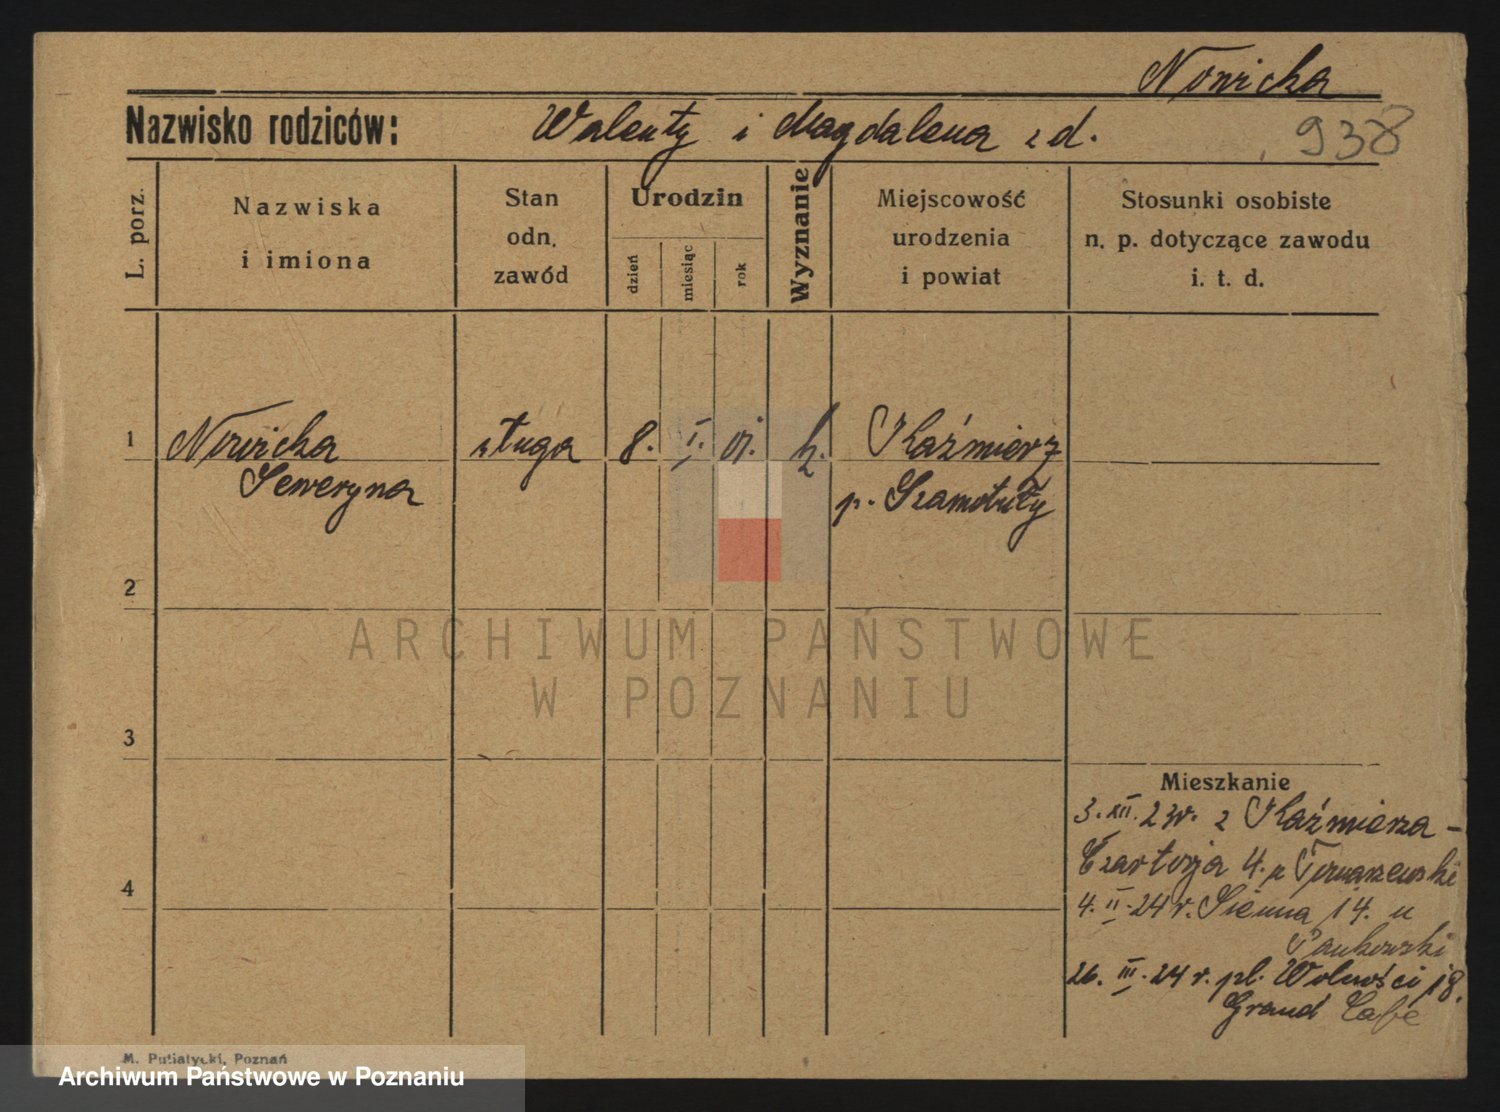 Nowicka
Nazwisko rodziców: Walenty i Magdalena z d.
938
L. porz.
Nazwiska
i imiona
Stan
odn.
zawód
Urodzin
dzień
miesiąc
rok
Wyznanie
Miejscowość
urodzenia
i powiat
Stosunki osobiste
n. p. dotyczące zawodu
i. t. d.
1
Nowicka
Seweryna
sługa
8. I. 01. k.
Kaźmierz
p. Szamotuły
2
3
4
Mieszkanie
3. XII. 23r. z Kaźmierza -
Czartorja 4. u Tomaszewski
4. II. 24 r. Sienna 14. u
Pankowski
26. III. 24 r. pl. Wolności 18.
Grand Cafe
M. Putiatycki, Poznań
ARCHIWUM PAŃSTWOWE
W POZNANIU
Archiwum Państwowe w Poznaniu